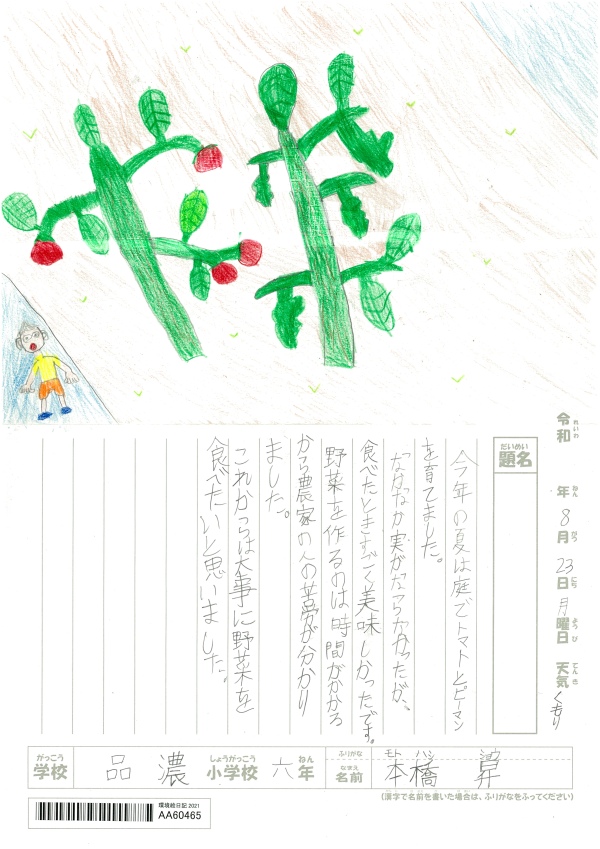 令和 年 8月 23日 月曜日 天気 くもり
れいわ ねん がつ にち ようび てんき
だいめい
題名
今年の夏は庭でトマトとピーマン
を育てました。
なかなか実がならなかったが、
食べたときすごく美味しかったです。
野菜を作るのは時間がかかる
から農家の人の苦労が分かり
ました。
これからは大事に野菜を
食べたいと思いました。
がっこう しょうがっこう ねん
学校 品濃 小学校 六年
ふりがな モト ハシ
なまえ
名前 本橋
(漢字で名前を書いた場合は、ふりがなをふってください)
環境絵日記 2021
AA60465